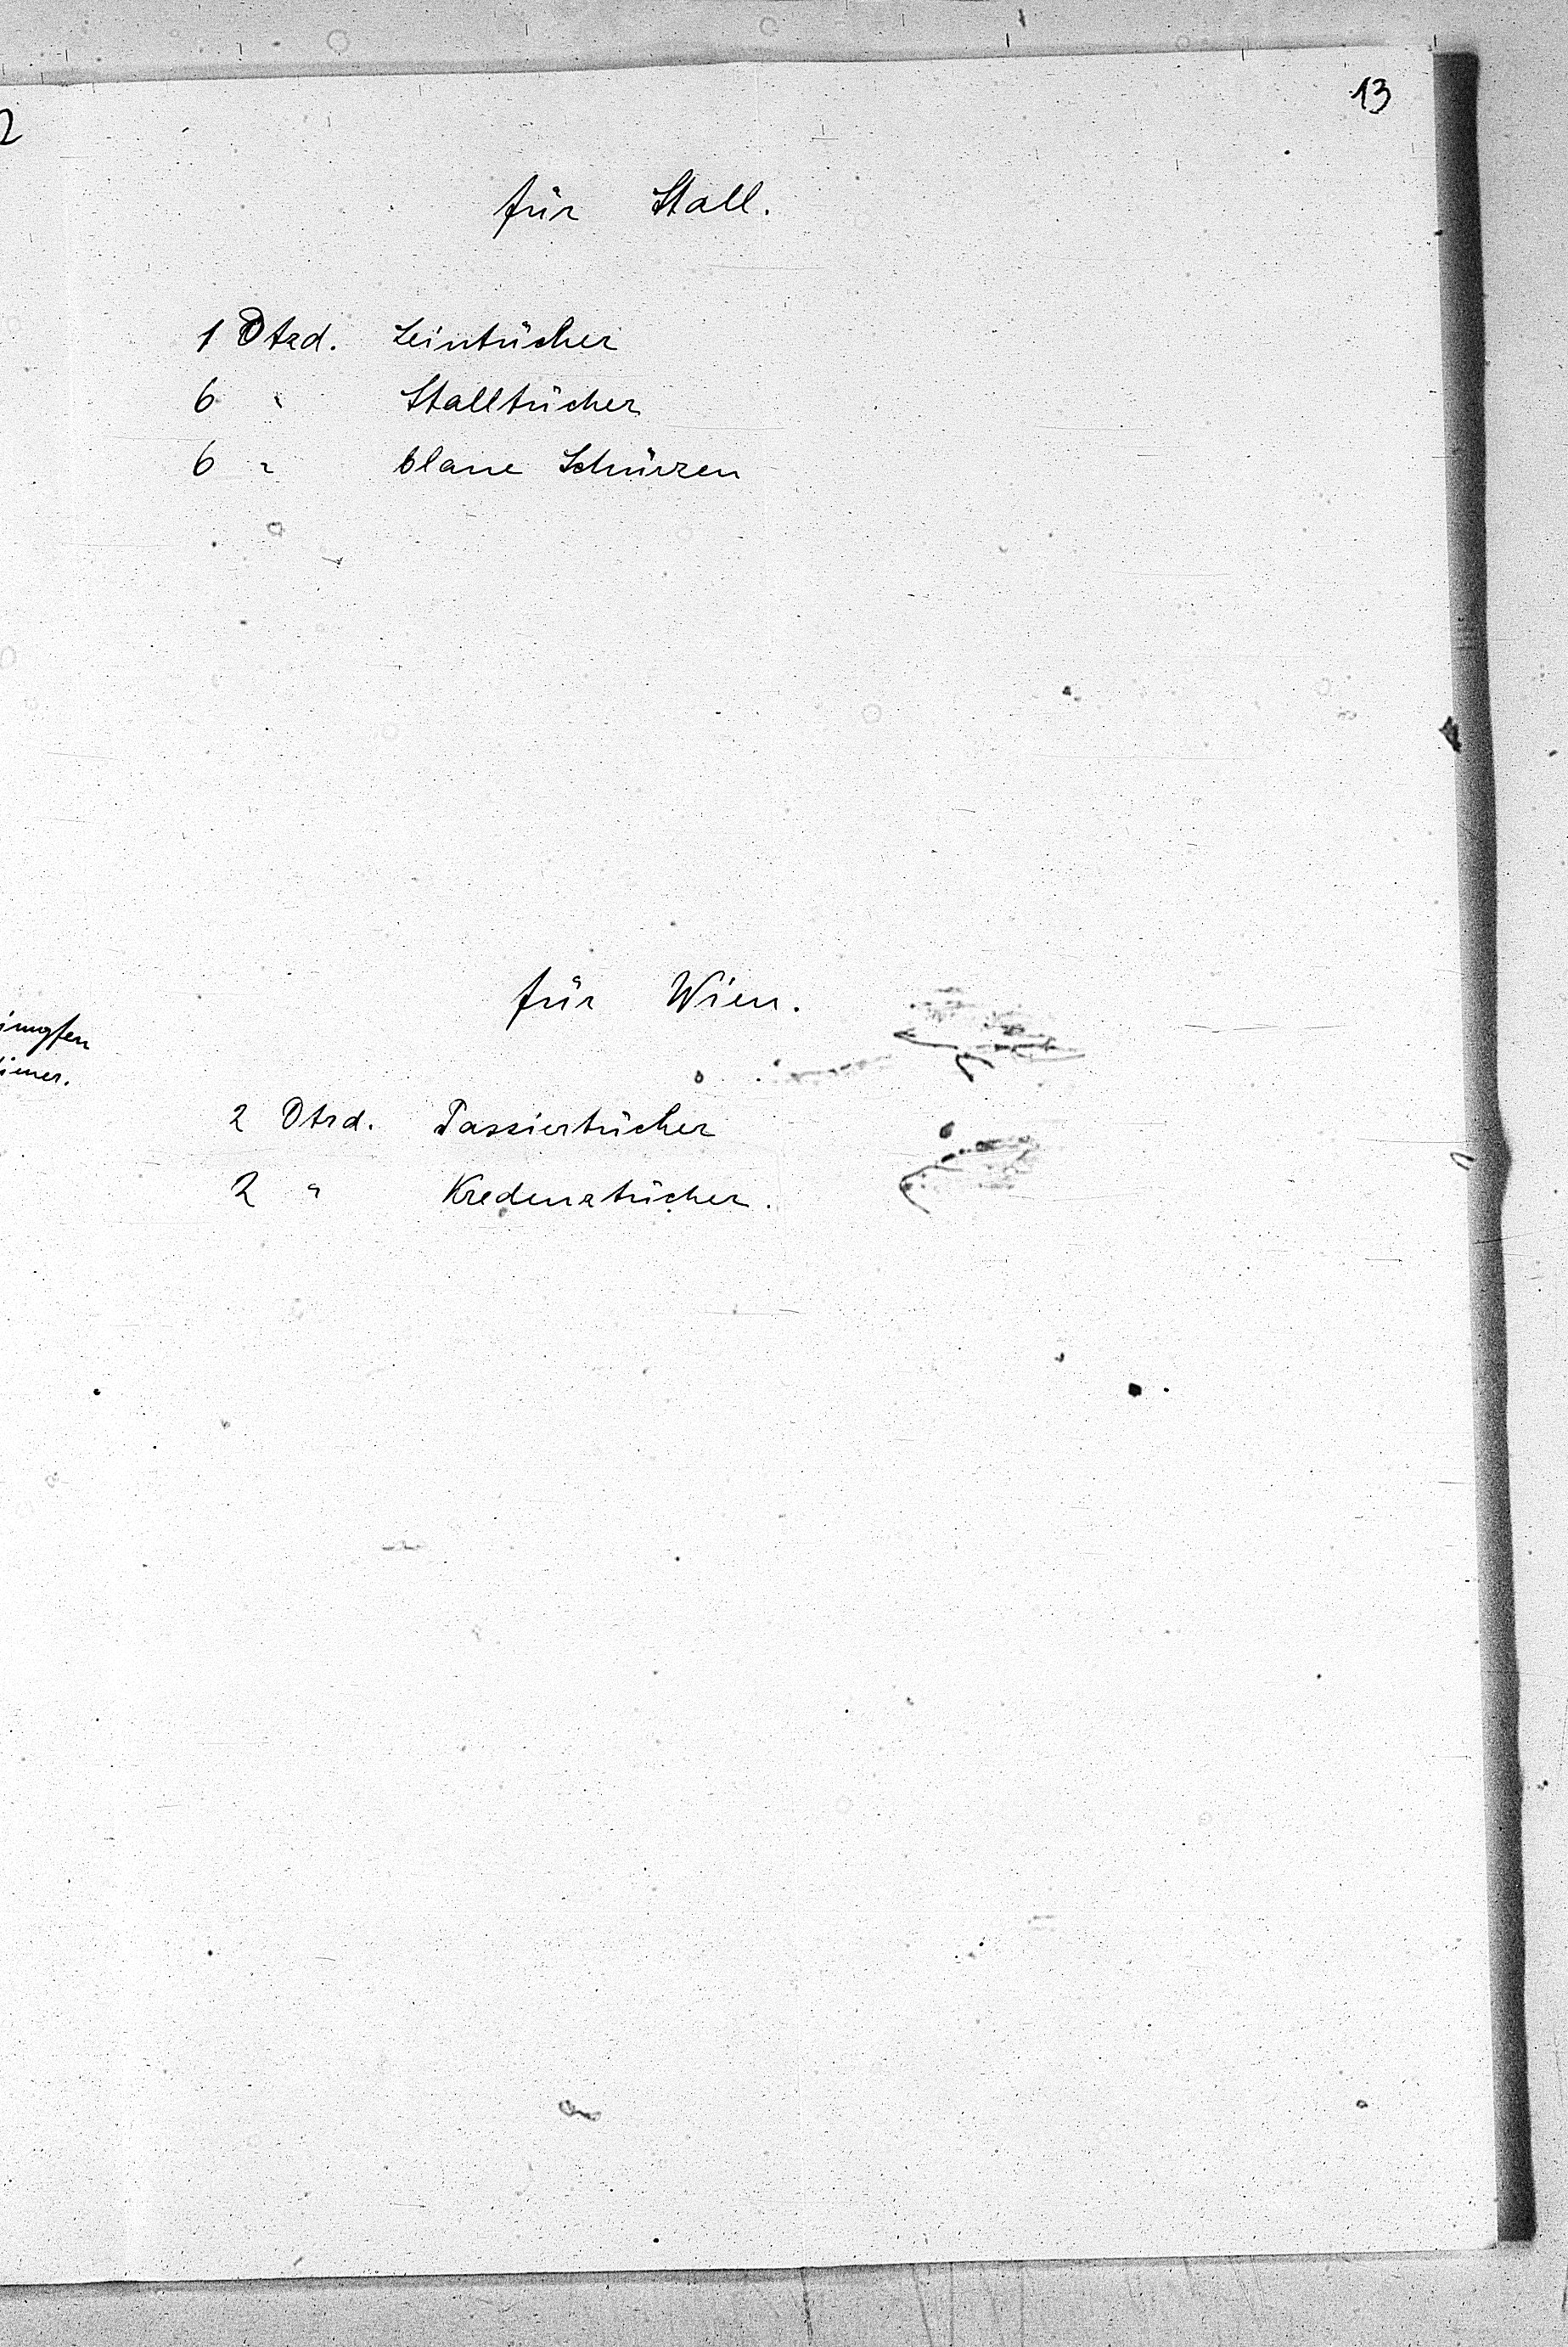 13
für Stall.
1 Dtzd. Leintücher
6 " Stalltücher
6 " blaue Schürzen
für Wien.
2 Dtzd. Passiertücher
2 " Kredenztücher.